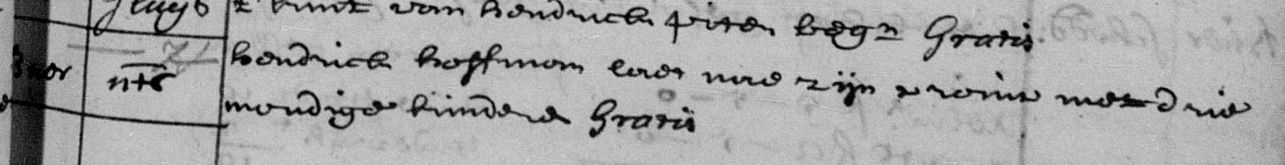 t kint van hendrick piters begr Gratis
hendrick hoffman laet nae zijn vrouw met drie
mondige kindere Gratis